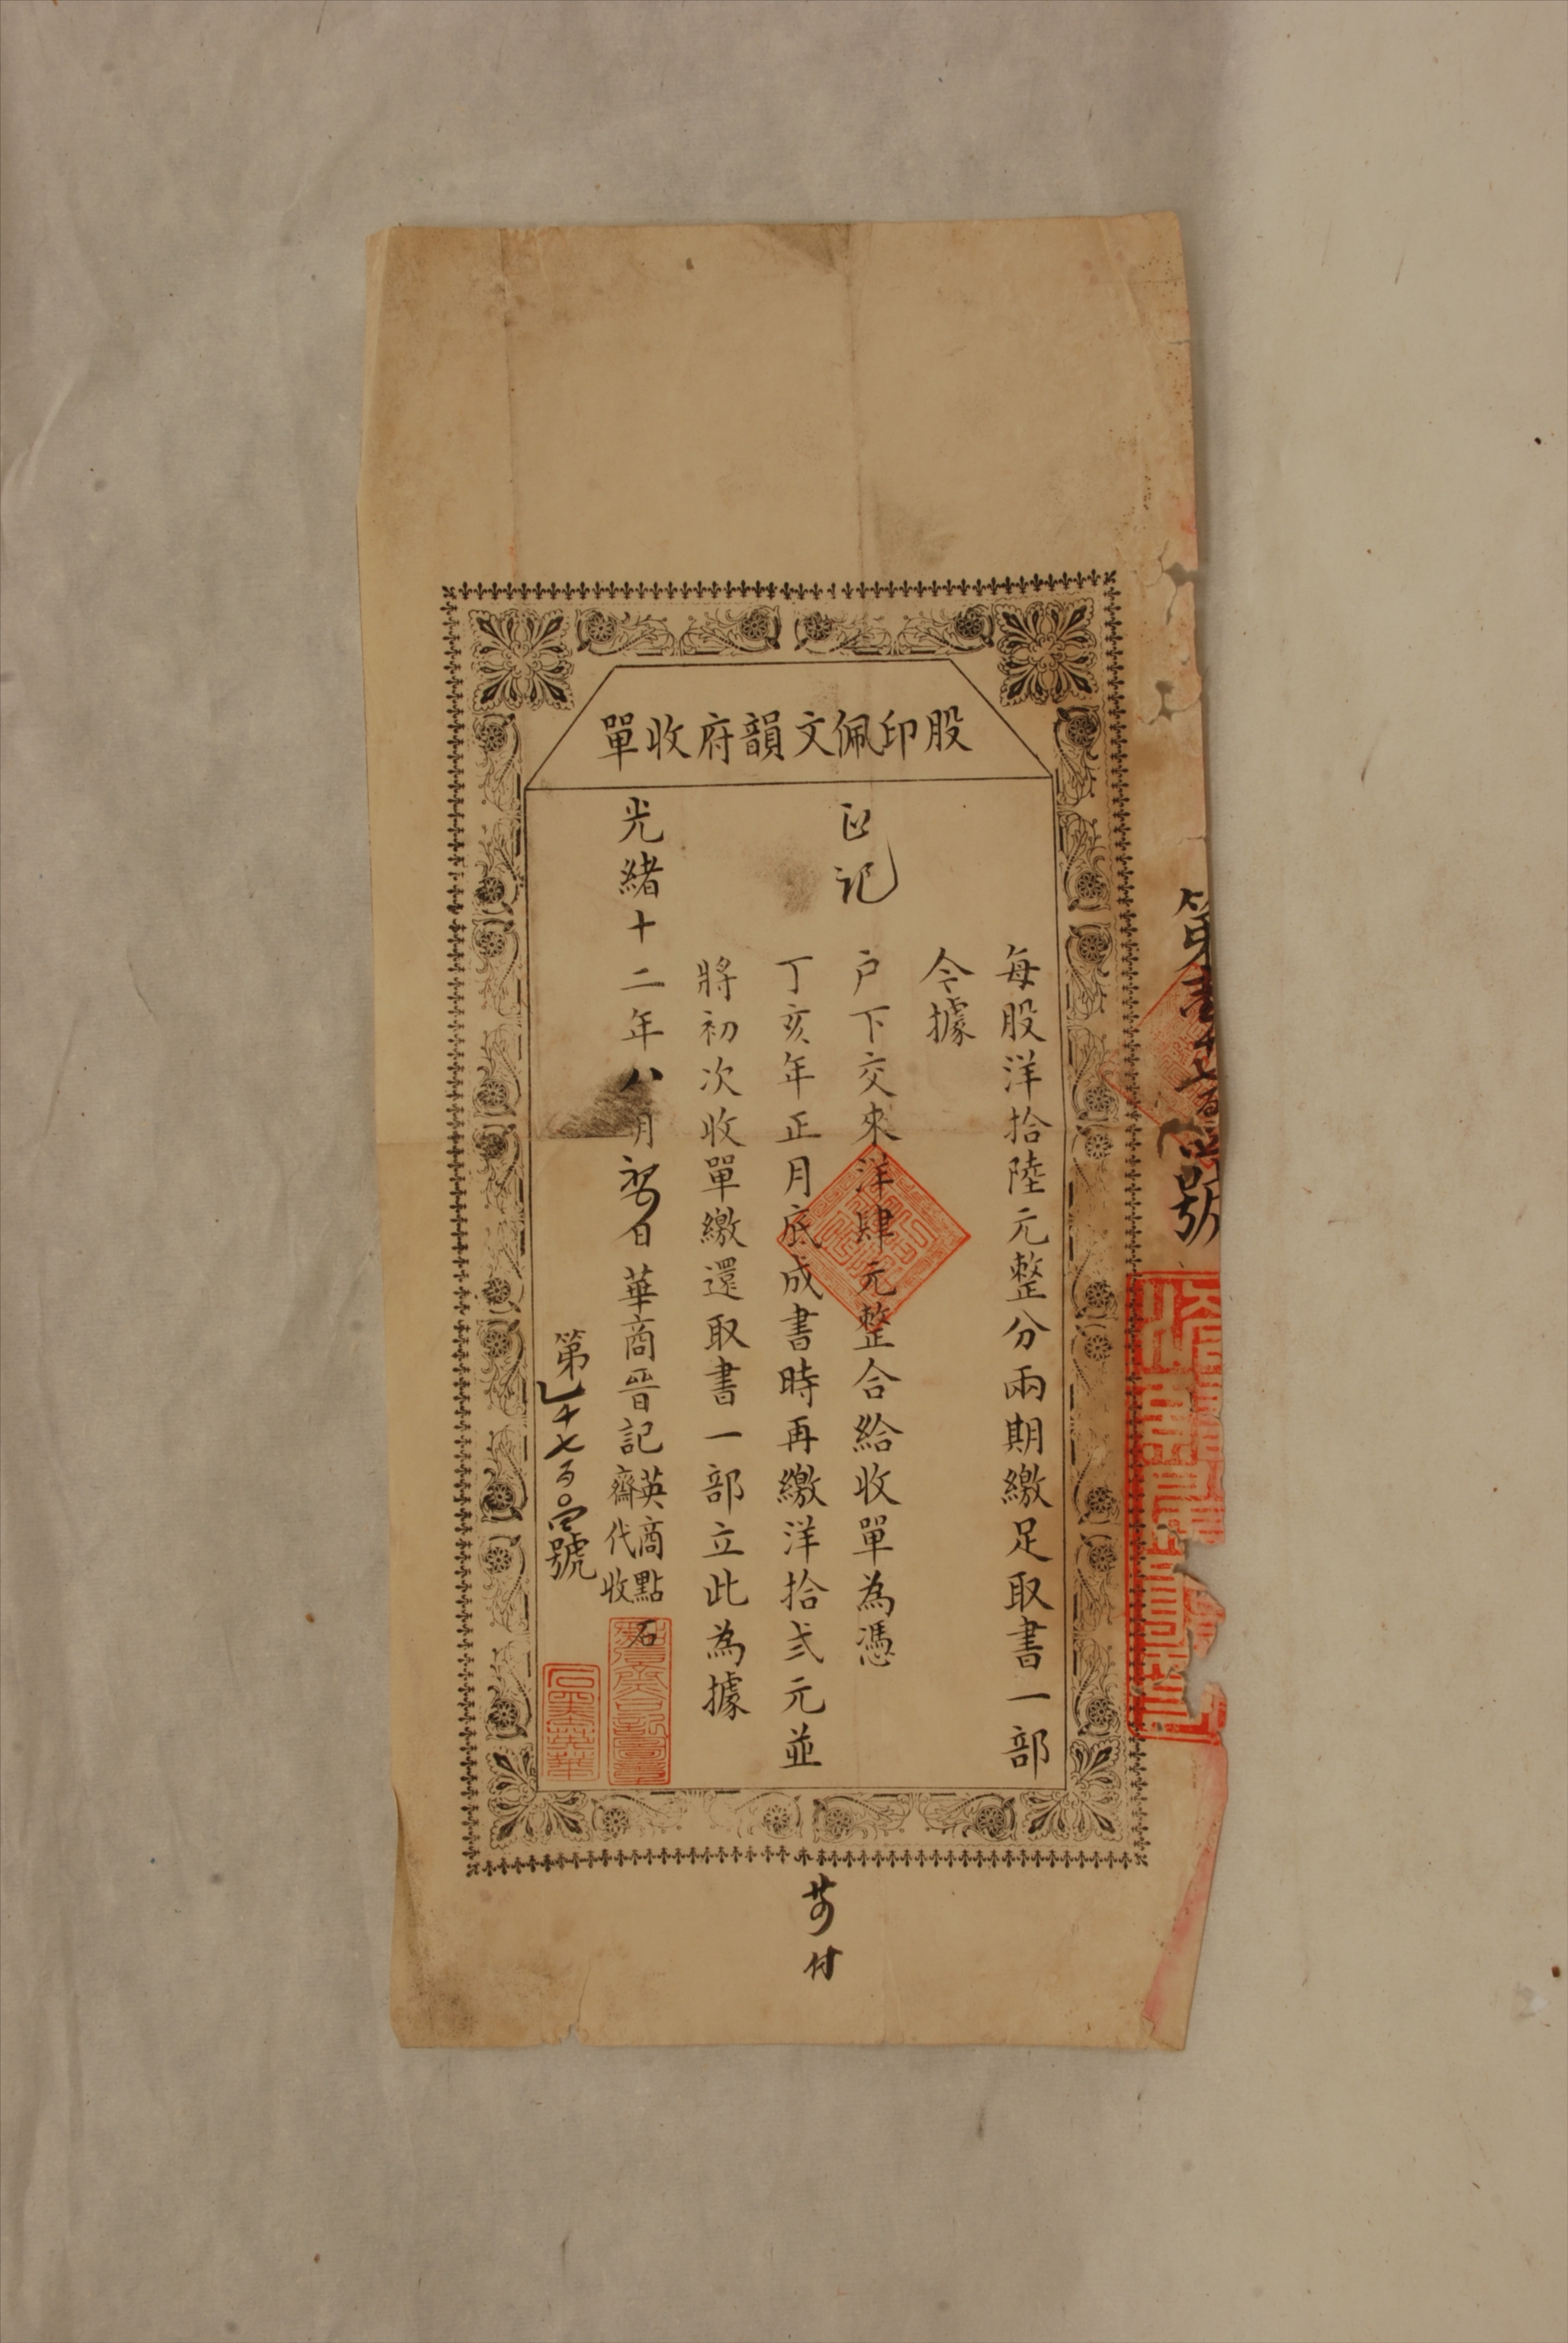 股印佩文韻府收單
每股洋拾陸元整分兩期繳足取書一部
今據
記
戶下交來洋肆元整合給收單為憑
丁亥年正月底成書時再繳洋拾弍元並
將初次收單繳還取書一部立此為據
光緒十二年八月初日華商晉記英商點石齋代收
第 千七百〇四號
號
付